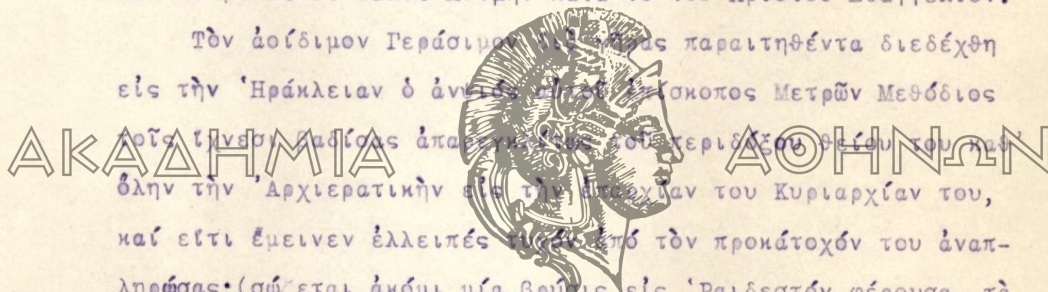 Τὸν ἀοίδιμον Γεράσιμον διὰ γῆρας παραιτηθέντα διεδέχθη
εἰς τὴν Ἡράκλειαν ὁ ἀνεψιός αὐτοῦ ἐπίσκοπος Μετρῶν Μεθόδιος
τοῖς ἴχνεσι βαδίσας τοῦ περιδόξου θείου του καθ'
ὅλην τὴν Ἀρχιερατικὴν εἰς τὴν ἐπαρχίαν του Κυριαρχίαν του,
καί εἴτι ἔμεινεν ἐλλειπές τυχόν ἀπό τὸν προκάτοχόν του ἀναπ-
ληρώσας (σώζεται ἀκόμι μία βρύσις εἰς Ῥαιδεστόν φέρουσα τὸ
ΑΚΑΔΗΜΙΑ ΑΘΗΝΩΝ